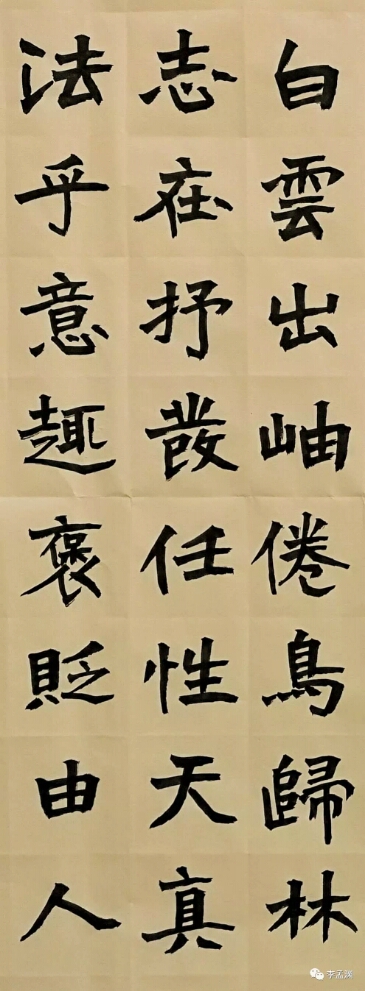 白雲出岫倦鳥歸林
志在抒發任性天真
法乎意趣褒貶由人